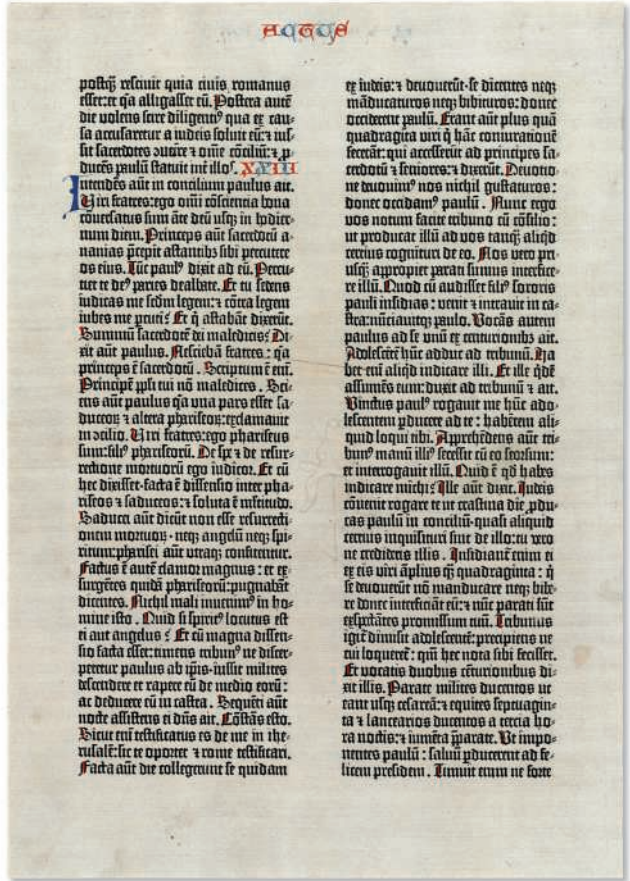 ACTUS
postq̄ꝫ resciuit quia ciuis romanus
esset: et q̓a alligasset eū. Postera autē
die volens scire diligentiꝰ qua ex cau-
sa accusaretur a iudeis soluit eū: ⁊ ius-
sit sacerdotes ꝯuēire ⁊ om̄e cōciliū: ⁊ ꝓ-
ducēs paulū statuit int̄ illoſ. XXIII
Intendēs aūt in concilium paulus ait.
Viri fratres: ego om̄i cōsciencia bona
cōuersatus sum ante deū usqꝫ in hodier-
num diem. Princeps aūt sacerdotū a-
nanias p̄cepit astantibꝰ sibi percutere
os eius. Tūc paulꝰ dixit ad eū. Percu-
tiet te deꝰ paries dealbate. Et tu sedens
iudicas me sc̄dm legem: ⁊ cōtra legem
iubes me ꝑcuti? Et q̇ astabāt dixerūt.
Summū sacerdotē dei maledicis? Di-
xit aūt paulus. Nesciebā fratres: q̓a
princeps ē sacerdotū. Scriptum ē eni͂.
Principē ppl̓i tui nō maledices. Sci-
ens aūt paulus q̓a una pars esset sa-
duceoꝝ ⁊ altera phariseoꝝ: exclamauit
in ꝯcilio. Viri fratres: ego phariseus
sum: filiꝰ phariseorū. De spe ⁊ de resur-
rectione mortuorū ego iudicor. Et cū
hec dixisset: facta ē dissensio inter pha-
riseos ⁊ saduceos: ⁊ soluta ē m̄ltitudo.
Saducei aūt dicūt non esse resurrecti-
onem mortuoꝝ. neqꝫ angelū neqꝫ spi-
ritum: pharisei aūt utraqꝫ confitentur.
Factus ē autē clamor magnus: et ex-
surgētes quidā phariseorū: pugnabāt
dicentes. Nichil mali inuenimꝰ in ho-
mine isto. Quid si spiritꝰ locutus est
ei aut angelus? Et cū magna dissen-
sio facta esset: timens tribunꝰ ne discer-
peretur paulus ab ip̄is: iussit milites
descendere et rapere eū de medio eorū:
ac deducere eū in castra. Sequēti aūt
nocte assistens ei dn̄s ait. Cōstās esto.
Sicut eni͂ testificatus es de me in ihe-
rusalē: sic te oportet ⁊ rome testificari.
Facta aūt die collegerunt se quidam
ex iudeis: ⁊ deuouerūt se dicentes neqꝫ
māducaturos neqꝫ bibituros: donec
occiderent paulū. Erant aūt plus quā
quadraginta viri q̇ hāc coniurationē
fecerāt: qui accesserūt ad principes sa-
cerdotū ⁊ seniores: ⁊ dixerūt. Deuotio-
ne deuouimꝰ nos nichil gustaturos:
donec occidamꝰ paulū. Nunc ergo
vos notum facite tribuno cū cōsilio:
ut producat illū ad vos tanq̄ꝫ aliq̇d
cercius cognituri de eo. Nos vero pri-
usq̄ꝫ appropiet parati sumus interfice-
re illū. Quod cū audisset filiꝰ sororis
pauli insidias: venit ⁊ intrauit in ca-
stra: nūciauitqꝫ paulo. Vocās autem
paulus ad se unū ex centurionibꝫ ait.
Adolescētē hūc adduc ad tribunū. Ha-
bet eni͂ aliq̇d indicare illi. Et ille q̇dē
assumēs eum: duxit ad tribunū ⁊ ait.
Vinctus paulꝰ rogauit me hūc ado-
lescentem ꝑducere ad te: habētem ali-
quid loqui tibi. Apprehēdens aūt tri-
bunꝰ manū illiꝰ secessit cū eo seorsum:
et interrogauit illū. Quid ē qd̄ habes
indicare michi? Ille aūt dixit. Iudeis
cōuenit rogare te ut crastina die ꝓdu-
cas paulū in conciliū: quasi aliquid
cercius inquisituri sint de illo: tu vero
ne credideris illis. Insidiant̄ enim ei
ex eis viri āplius q̄ꝫ quadraginta: q̇
se deuouerūt nō manducare neqꝫ bibe-
re donec interficiāt eū: ⁊ nūc parati sūt
exspectātes promissum tuū. Tribunus
igit̄ dimisit adolescentē: precipiens ne
cui loqueret̄: qm̄ hec nota sibi fecisset.
Et vocatis duobus cēturionibus di-
xit illis. Parate milites ducentos ut
eant usqꝫ cesareā: ⁊ equites septuagin-
ta ⁊ lancearios ducentos a tercia ho-
ra noctis: ⁊ iumēta p̄parate. Ut impo-
nentes paulū: saluū ꝑducerent ad fe-
licem presidem. Timuit enim ne forte